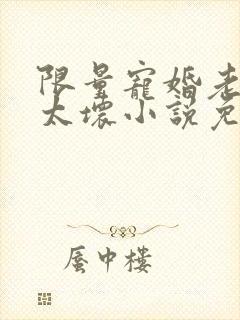 限量寵婚老
太壞小說免
蜃中樓